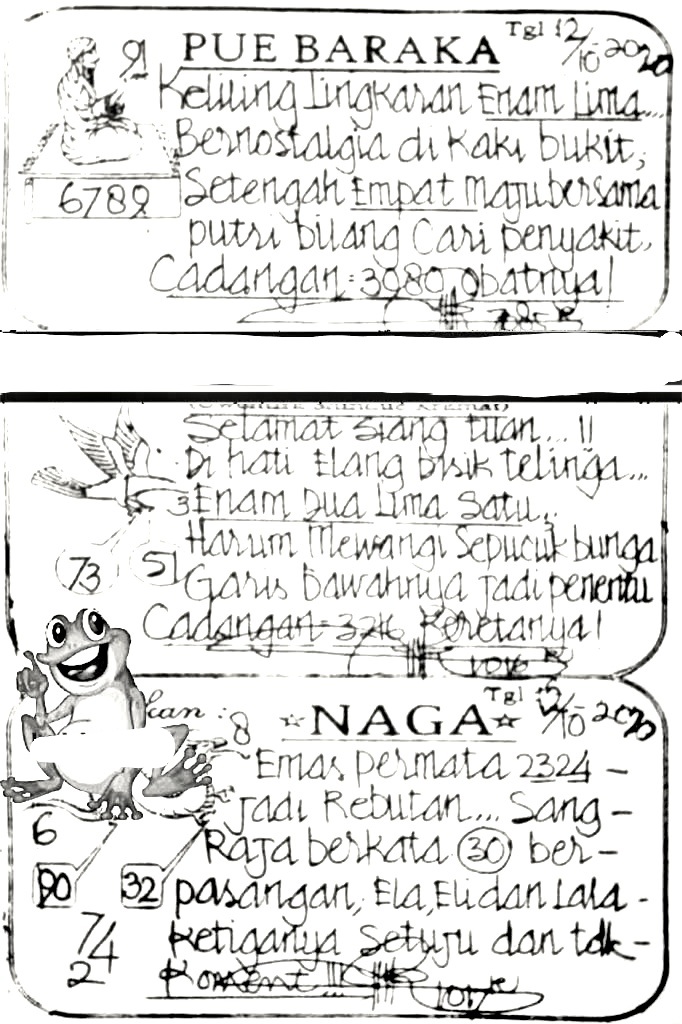 Tgl 12/10-2020
PUE BARAKA
9
Keliling Lingkaran Enam Lima...
Bernostalgia di kaki bukit,
6789
Setengah Empat Maju bersama
putri bilang Cari penyakit,
Cadangan: 3080 Obatnya!
Selamat siang tuan... !!
Di hati Elang bisik telinga...
3
Enam Dua Lima Satu...
Harum Mewangi Sepucuk bunga
73
51
Garis bawahnya jadi penentu
Cadangan: 3216 Keretanya!
Tgl 12/10-2020
kan :
8
☆NAGA☆
Emas permata 2324 -
jadi Rebutan.... Sang -
6
Raja berkata 30 ber -
90
32
pasangan, Ela, Eli dan Lala -
74
ketiganya Setuju dan tdk -
2
Koment !!!